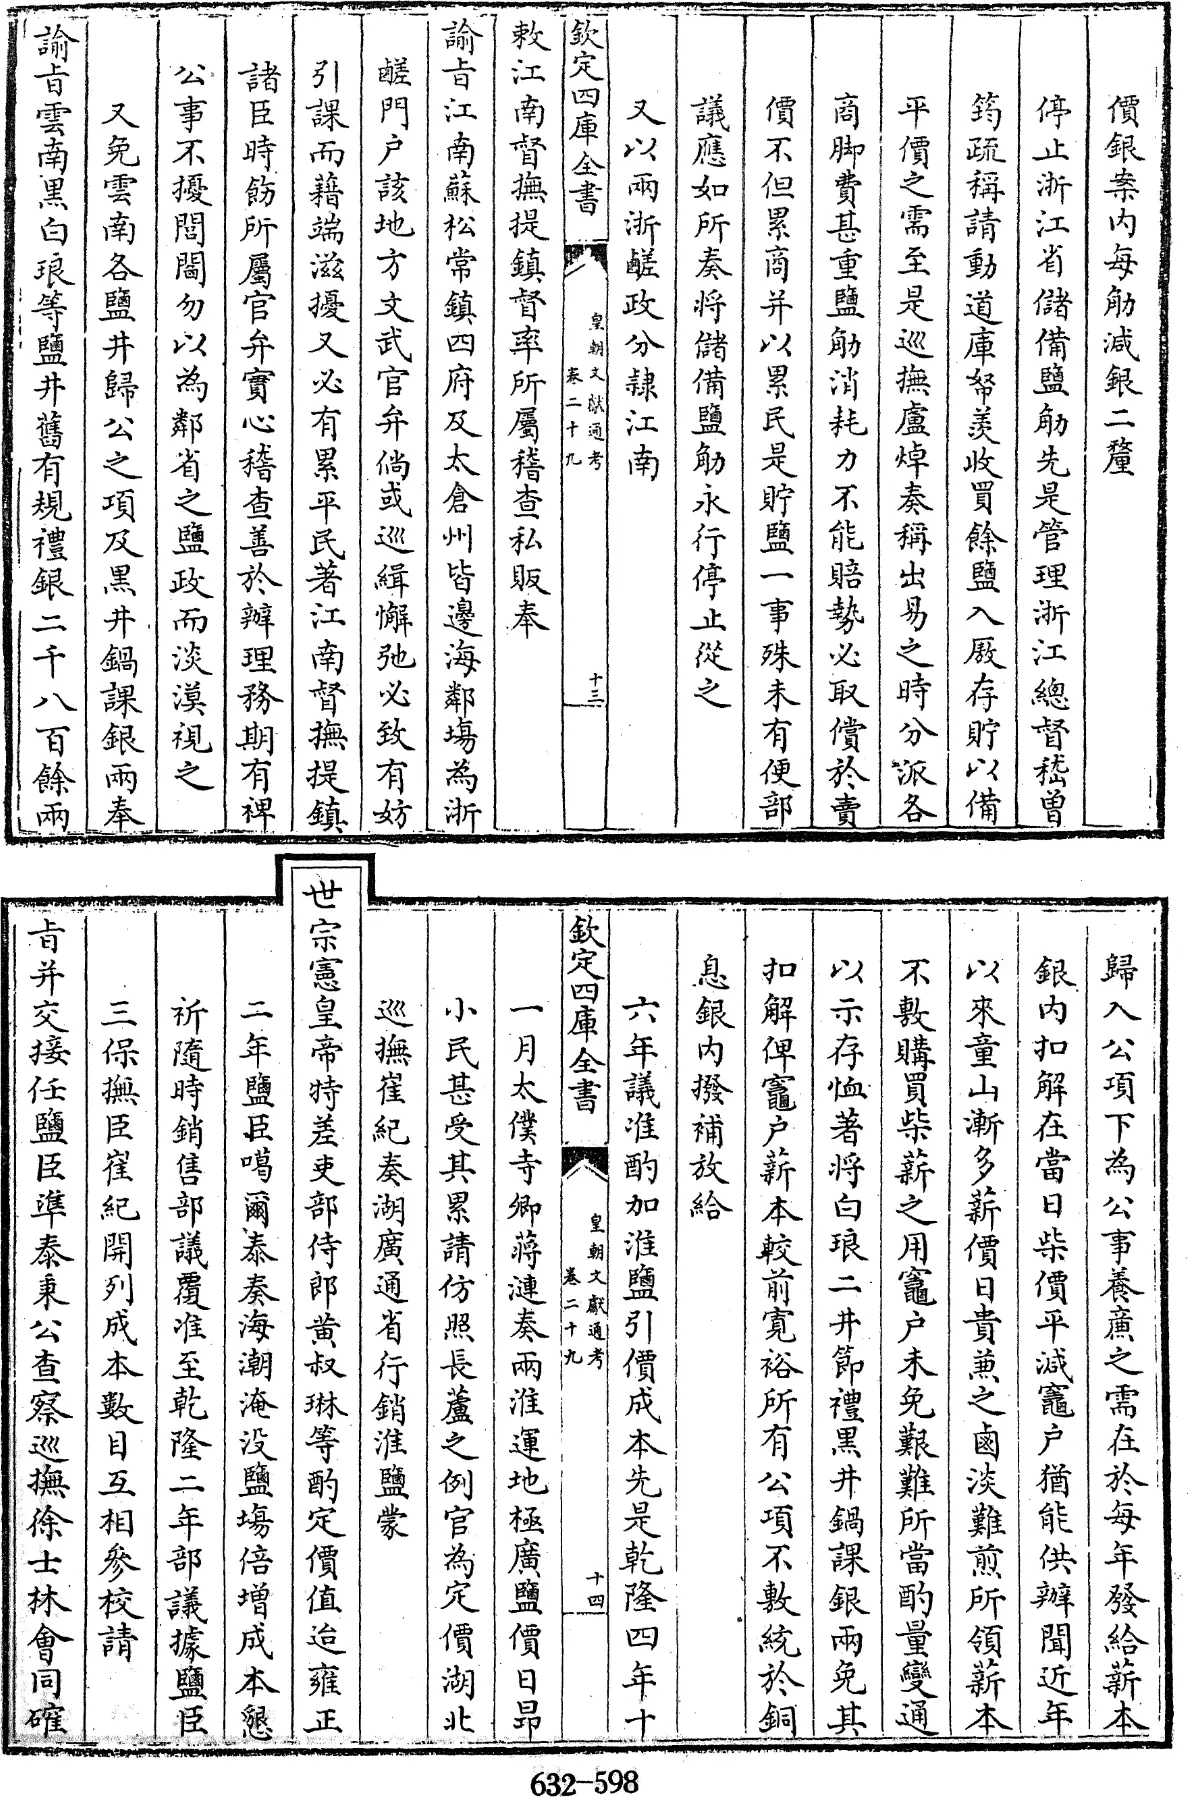 價銀案内每觔減銀二釐
停止浙江省儲備鹽觔先是管理浙江總督嵇曾
筠疏稱請動道庫帑羨收買餘鹽入厫存貯以備
平價之需至是巡撫盧焯奏稱出易之時分派各
商脚費甚重鹽觔消耗力不能賠勢必取償於賣
價不但累商并以累民是貯鹽一事殊未有便部
議應如所奏將儲備鹽觔永行停止從之
又以兩浙鹺政分隸江南
欽定四庫全書
皇朝文獻通考
卷二十九
十三
敕江南督撫提鎮督率所屬稽查私販奉
諭旨江南蘇松常鎮四府及太倉州皆邊海鄰塲為浙
鹺門户該地方文武官弁倘或巡緝懈弛必致有妨
引課而藉端滋擾又必有累平民著江南督撫提鎮
諸臣時飭所屬官弁實心稽查善於辦理務期有裨
公事不擾閭閻勿以為鄰省之鹽政而淡漠視之
又免雲南各鹽井歸公之項及黑井鍋課銀兩奉
諭旨雲南黑白琅等鹽井舊有規禮銀二千八百餘兩
歸入公項下為公事養廉之需在於每年發給薪本
銀内扣解在當日柴價平減竈户猶能供辦聞近年
以來童山漸多薪價日貴兼之鹵淡難煎所領薪本
不敷購買柴薪之用竈户未免艱難所當酌量變通
以示存恤著將白琅二井節禮黑井鍋課銀兩免其
扣解俾竈户薪本較前寛裕所有公項不敷統於銅
息銀内撥補放給
六年議准酌加淮鹽引價成本先是乾隆四年十
欽定四庫全書
皇朝文獻通考
卷二十九
十四
一月太僕寺卿蔣漣奏兩淮運地極廣鹽價日昂
小民甚受其累請仿照長蘆之例官為定價湖北
巡撫崔紀奏湖廣通省行銷淮鹽蒙
世宗憲皇帝特差吏部侍郎黄叔琳等酌定價值迨雍正
二年鹽臣噶爾泰奏海潮淹没鹽塲倍增成本懇
祈隨時銷售部議覆准至乾隆二年部議據鹽臣
三保撫臣崔紀開列成本數目互相參校請
旨并交接任鹽臣準泰秉公查察巡撫徐士林會同確
632-598